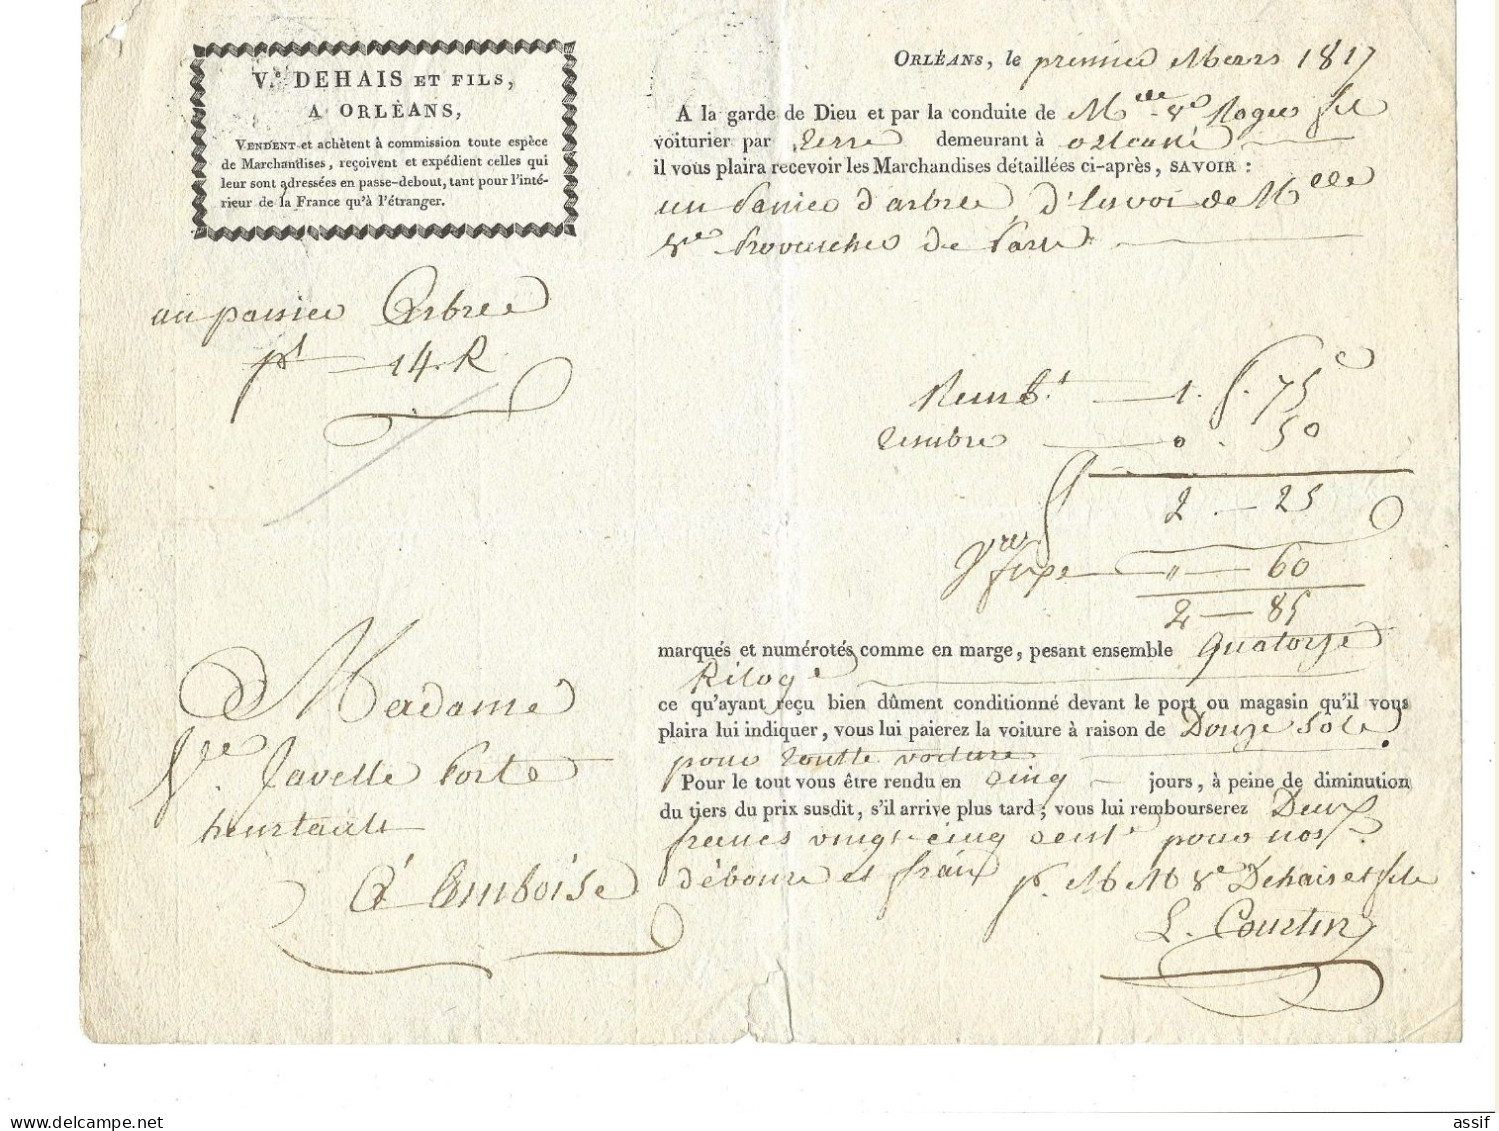 V.e DEHAIS ET FILS,
A ORLÉANS,
VENDENT et achètent à commission toute espèce
de Marchandises, reçoivent et expédient celles qui
leur sont adressées en passe-debout, tant pour l'inté-
rieur de la France qu'à l'étranger.
ORLÉANS, le premier Mars 1817
A la garde de Dieu et par la conduite de Mlle Ve
voiturier par terre demeurant à orleans
il vous plaira recevoir les Marchandises détaillées ci-après, SAVOIR :
un panier d'arbre, d'Envoi de Mlle
Ve de Paris
un panier Arbre
pt 14. K
Rembt. 1. f. 75c
timbre 0. 50
2 - 25
" - 60
2 - 85
marqués et numérotés comme en marge, pesant ensemble Quatorze
Kilogé
ce qu'ayant reçu bien dûment conditionné devant le port ou magasin qu'il vous
plaira lui indiquer, vous lui paierez la voiture à raison de Douze Sols
pour toutte voiture
Pour le tout vous être rendu en cinq jours, à peine de diminution
du tiers du prix susdit, s'il arrive plus tard; vous lui rembourserez Deux
francs vingt-cinq cent pour nos
débours et fraix p. M M Ve Dehais et fils
L. Courtin
Madame
Ve. Javelle Porte
heurtault
A Amboise
assif
delcampe.net